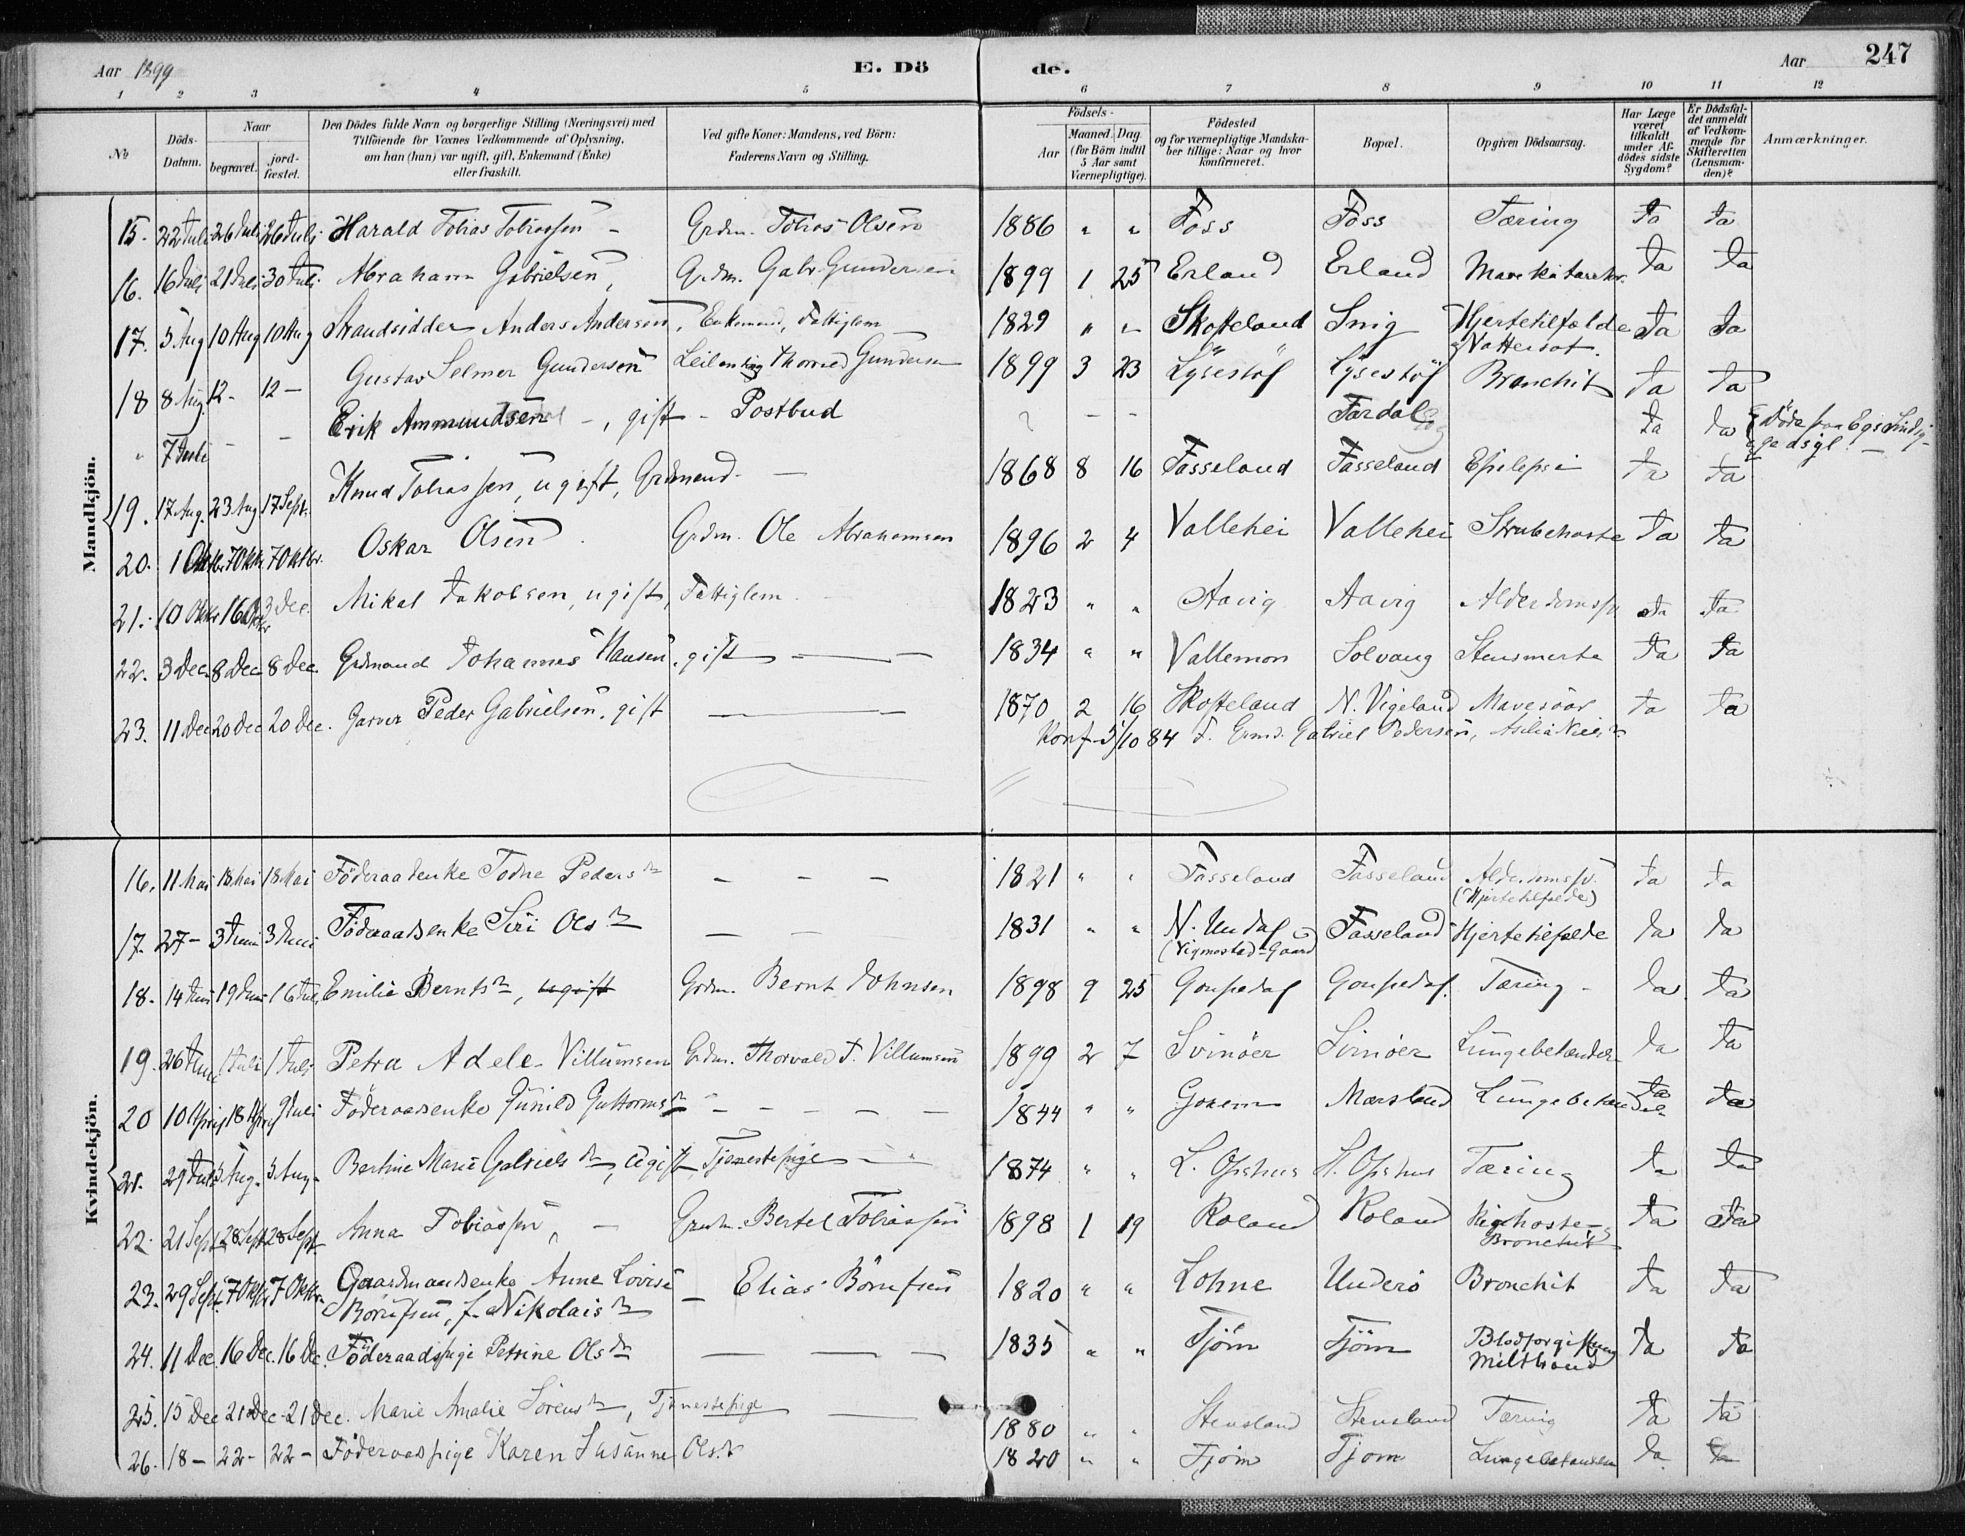 Aar 1899 E. Dö de. Aar 247
1 2 3 4 5 6 7 8 9 10 11 12
No Döds-Datum. Naar begravet. jord-fæstet. Den Dödes fulde Navn og borgerlige Stilling (Næringsvei) med Tilföiende for Voxnes Vedkommende af Oplysning, om han (hun) var ugift, gift, Enkemand (Enke) eller fraskilt. Ved gifte Koner: Mandens, ved Börn: Faderens Navn og Stilling. Födsels- Aar Maaned. Dag (for Börn indtil 5 Aar samt Værnepligtige). Födested og for værnepligtige Mandskaber tillige: Naar og hvor konfirmeret. Bopæl. Opgiven Dödsaarsag. Har Læge været tilkaldt under Afdödes sidste Sygdom? Er Dödsfaldet anmeldt af Vedkommende for Skifteretten (Lensmanden)? Anmærkninger.
Mandkjön.
15. 22 Juli 26 Juli 26 Juli Harald Tobias Tobiassen – Grdm. Tobias Olsen 1886 " " Foss Foss Tæring Ja Ja
16. 16 Juli 21 Juli 30 Juli Abraham Gabrielsen, Grdm. Gabr. Gundersen 1899 1 25 Erland Erland Mavekatarrh. Ja Ja
17. 5 Aug 10 Aug 10 Aug Strandsidder Anders Andersen, Enkemand, Fattiglem 1829 " " Skofteland Snig Hjertetilfælde
& Vattersot. Ja Ja
18 8 Aug. 12 - 12 – Gustav Selmer Gundersen Leilending Thorvald Gundersen 1899 3 23 Lysestöl Lysestöl Bronchit Ja Ja
" 7 Juli – – Erik Ammundsen –, gift – Postbud ? – – Tardal Ja Ja Döde paa Egs Sindsyge
asyl. –
19. 17 Aug. 23 Aug 17 Sept. Knud Tobiassen, ugift, Grdmand. – 1868 8 16 Fasseland Fasseland Epilepsi Ja Ja
20. 1 Oktbr 7 Oktbr 7 Oktbr. Oskar Olsen Grdm. Ole Abrahamsen 1896 2 4 Vallehei Vallehei Strubehoste Ja Ja
21. 10 Oktbr 16 Oktbr 3 Dec. Mikal Jakobsen, ugift, Fattiglem 1823 " " Aavig Aavig Alderdomssv. Ja Ja
22. 3 Dec. 8 Dec 8 Dec. Grdmand Johannes Hansen, gift – – 1834 " " Vallemon Solvang Stensmerte Ja Ja
23. 11 Dec 20 Dec 20 Dec. Garver Peder Gabrielsen. gift – 1870 2 16 Skofteland N. Vigeland Mavesaar Ja Ja
Konf. 5/10 84 F. Grmd. Gabriel Pedersen,
Kvindekjön.
16. 11 Mai 18 Mai 18 Mai Föderaadsenke Todne Pedersdr – – – 1821 " " Fasseland Fasseland Alderdomssv.
(Hjertetilfælde) Ja Ja
17. 27 – 3 Juni 3 Juni Föderaadsenke Siri Olsdr – – 1831 " " N. Undal
(Vigmostad-Gaard) Fasseland Hjertetilfælde Ja Ja
18. 14 Juni 19 Juni 16 Juli Emilie Berntsdr, ugift Grdm. Bernt Johnsen 1898 9 25 Goupedal Goupedal. Tæring – Ja Ja
19. 26 Juni 1 Juli 1 Juli Petra Adele Villumsen Grdm. Thorvald T. Villumsen 1899 2 7 Svinöer Svinöer Lungebetændelse Ja Ja
20 10 April 18 April 9 Juli Föderaadsenke Gunild Guttormsdr – – – – – 1844 " " Gonem Marsland Lungebetændelse Ja Ja
21. 29 Juli 3 Aug. 3 Aug. Bertine Marie Gabrielsdr, ugift, Tjenestepige – 1874 " " L. Opshus L. Opshus Tæring Ja Ja
22. 21 Sept 28 Sept 28 Sept Anna Tobiassen, – Grdm. Bertel Tobiassen 1898 1 19 Roland Roland Kighoste-
Bronchit Ja Ja
23. 29 Sept 7 Oktbr 7 Oktbr. Gaardmandsenke Anne Lovise
Börufsen, f. Nikolaisdr – Elias Börufsen 1820 " " Lohne Underö Bronchit Ja Ja
24. 11 Dec. 16 Dec. 16 Dec. Föderaadspige Petrine Olsdr – – – 1835 " " Tjöm Tjöm Blodforgiftning
Miltbrand Ja Ja
25. 15 Dec 21 Dec. 21 Dec. Marie Amalie Sörensdr, Tjenestepige – 1880 " " Stensland Stensland Tæring Ja Ja
26. 18 – 22 – 22 – Föderaadspige Karen Susanne Olsdr 1820 " " Tjöm Tjom Lungebetændelse Ja Ja